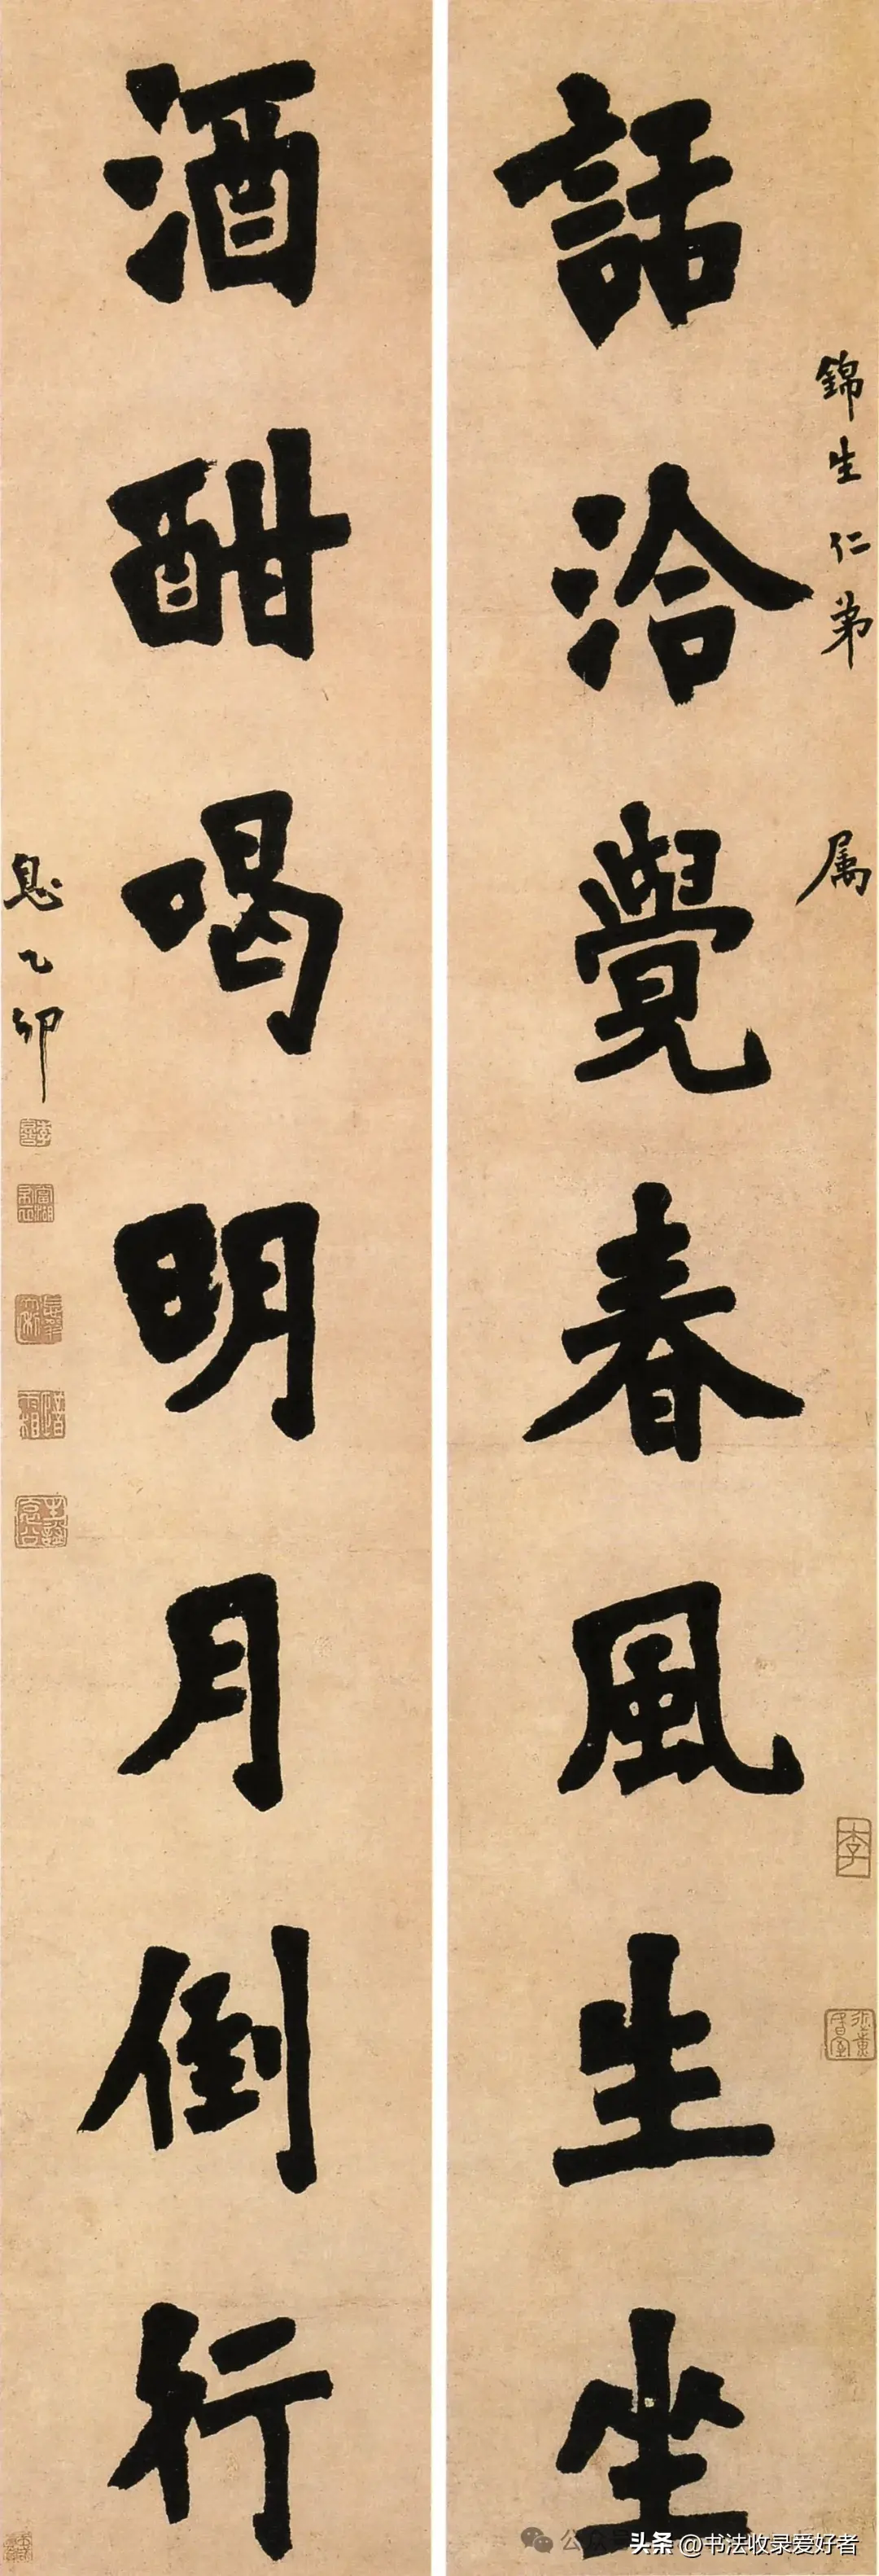 錦生仁弟 属
話洽覺春風生坐
酒酣喝明月倒行
息乙卯
李
头条 @书法收录爱好者